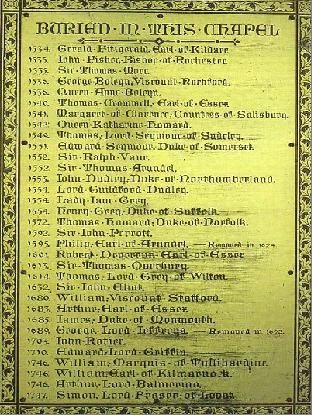 BURIED IN THIS CHAPEL
1534. Gerald Fitzgerald, Earl of Kildare.
1535. John Fisher, Bishop of Rochester.
1535. Sir Thomas More.
1536. George Boleyn, Viscount Rochford.
1536. Queen Anne Boleyn.
1540. Thomas Cromwell, Earl of Essex.
1541. Margaret of Clarence, Countess of Salisbury.
1542. Queen Katharine Howard.
1549. Thomas, Lord Seymour of Sudeley.
1551. Edward Seymour, Duke of Somerset.
1552. Sir Ralph Vane.
1552. Sir Thomas Arundel.
1553. John Dudley, Duke of Northumberland.
1554. Lord Guildford Dudley.
1554. Lady Jane Grey.
1554. Henry Grey, Duke of Suffolk.
1572. Thomas Howard, Duke of Norfolk.
1592. Sir John Perrott.
1595. Philip, Earl of Arundel. — Removed in 1624.
1601. Robert Devereux, Earl of Essex
1613. Sir Thomas Overbury.
1614. Thomas, Lord Grey of Wilton.
1632. Sir John Eliot.
1680. William, Viscount Stafford.
1683. Arthur, Earl of Essex.
1685. James, Duke of Monmouth.
1689. George, Lord Jeffreys. — Removed in
1703. John Rotier.
1710. Edward, Lord Griffin.
1746. William, Marquis of Tullibardine.
1746. William, Earl of Kilmarnock.
1746. Arthur, Lord Balmerino.
1747. Simon, Lord Fraser of Lovat.